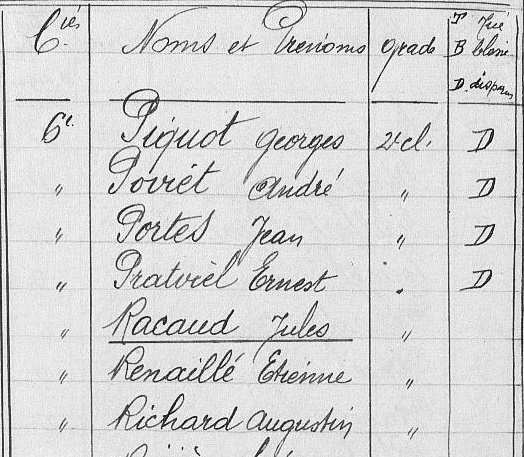 Cies Noms et Prénoms grade T Tué
B blessé
D. disparu
6e. Piquot Georges 2e cl. D
" Poviét André " D
" Portes Jean " D
" Pratviel Ernest " D
" Racaud Jules "
" Renaillé Etienne "
" Richard Augustin "